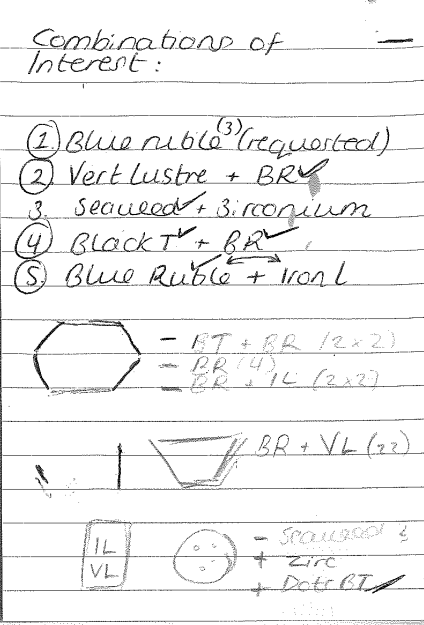 Combinations of
Interest:
1. Blue ruble (3) (requested)
2 Vert Lustre + BR
3. Seaweed + Zirconium
4 Black T + BR
5. Blue Ruble + Iron L
- BT + BR (2x2)
- BR (4)
- BR + IL (2x2)
BR + VL (22)
IL
VL
- Seaweed &
+ Zirc
+ Dots BT